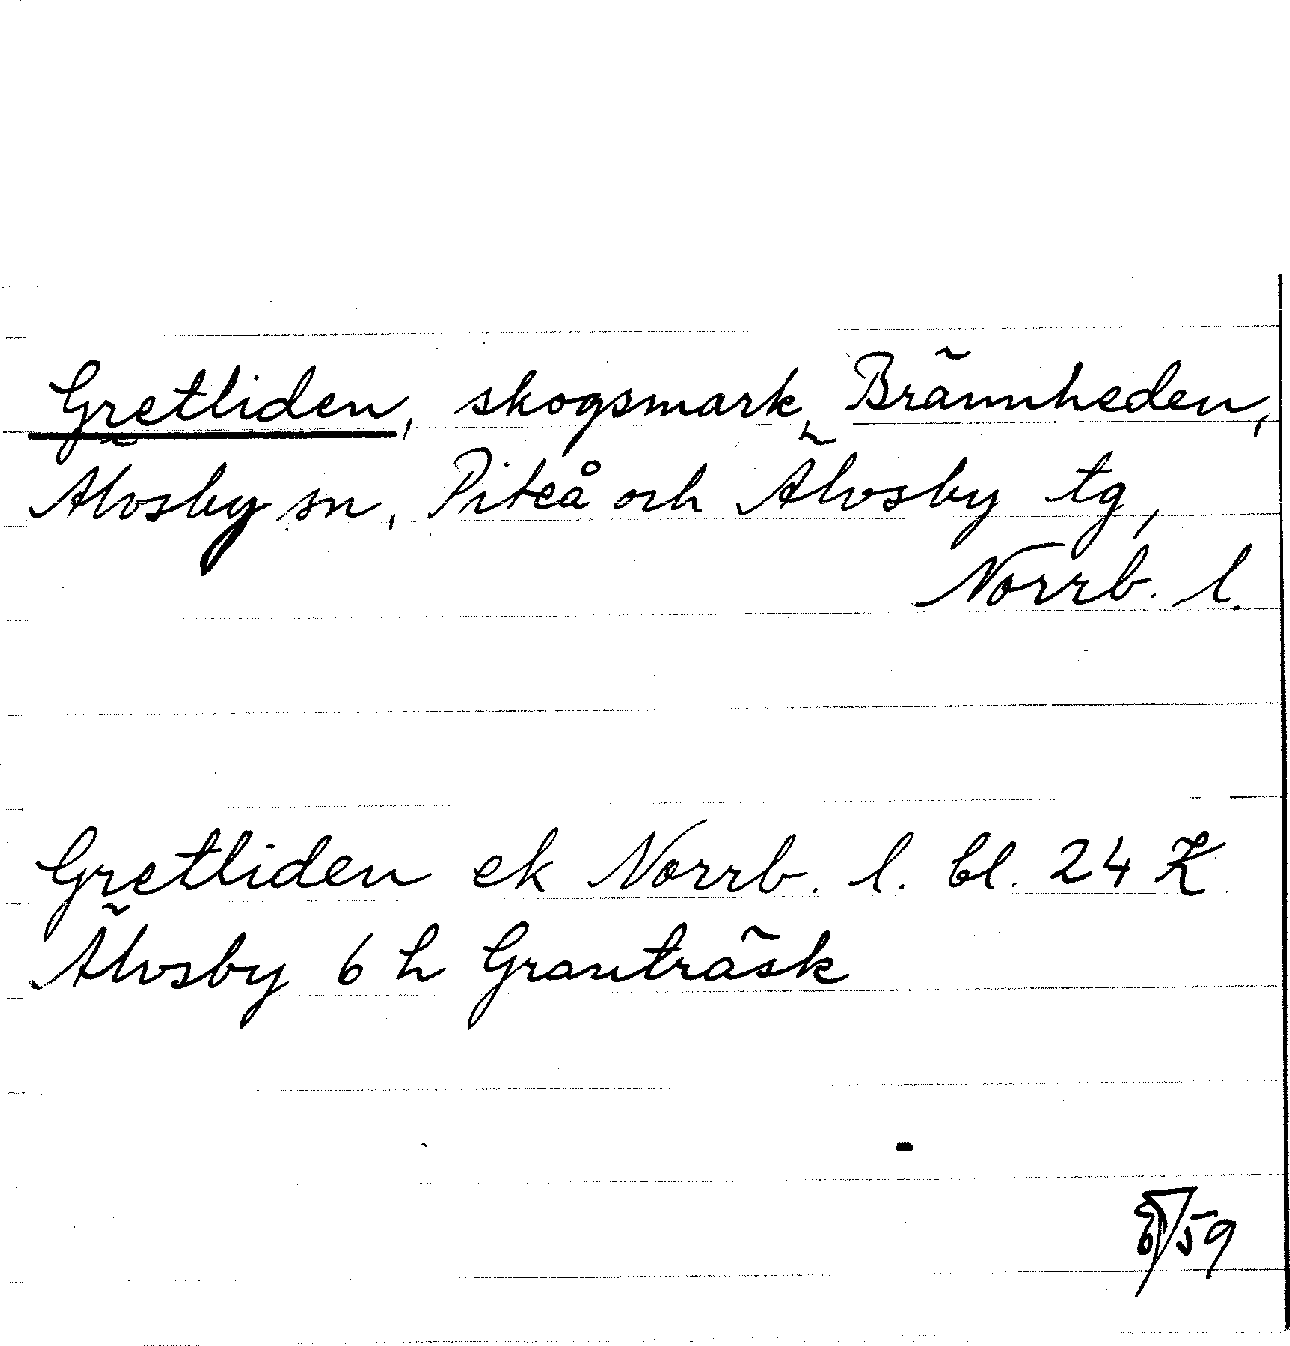 Gretliden, skogsmark, Brännheden,
Älvsby sn, Piteå och Älvsby tg,
Norrb. l.
Gretliden ek Norrb. l. bl. 24 K
Älvsby 6 h Granträsk